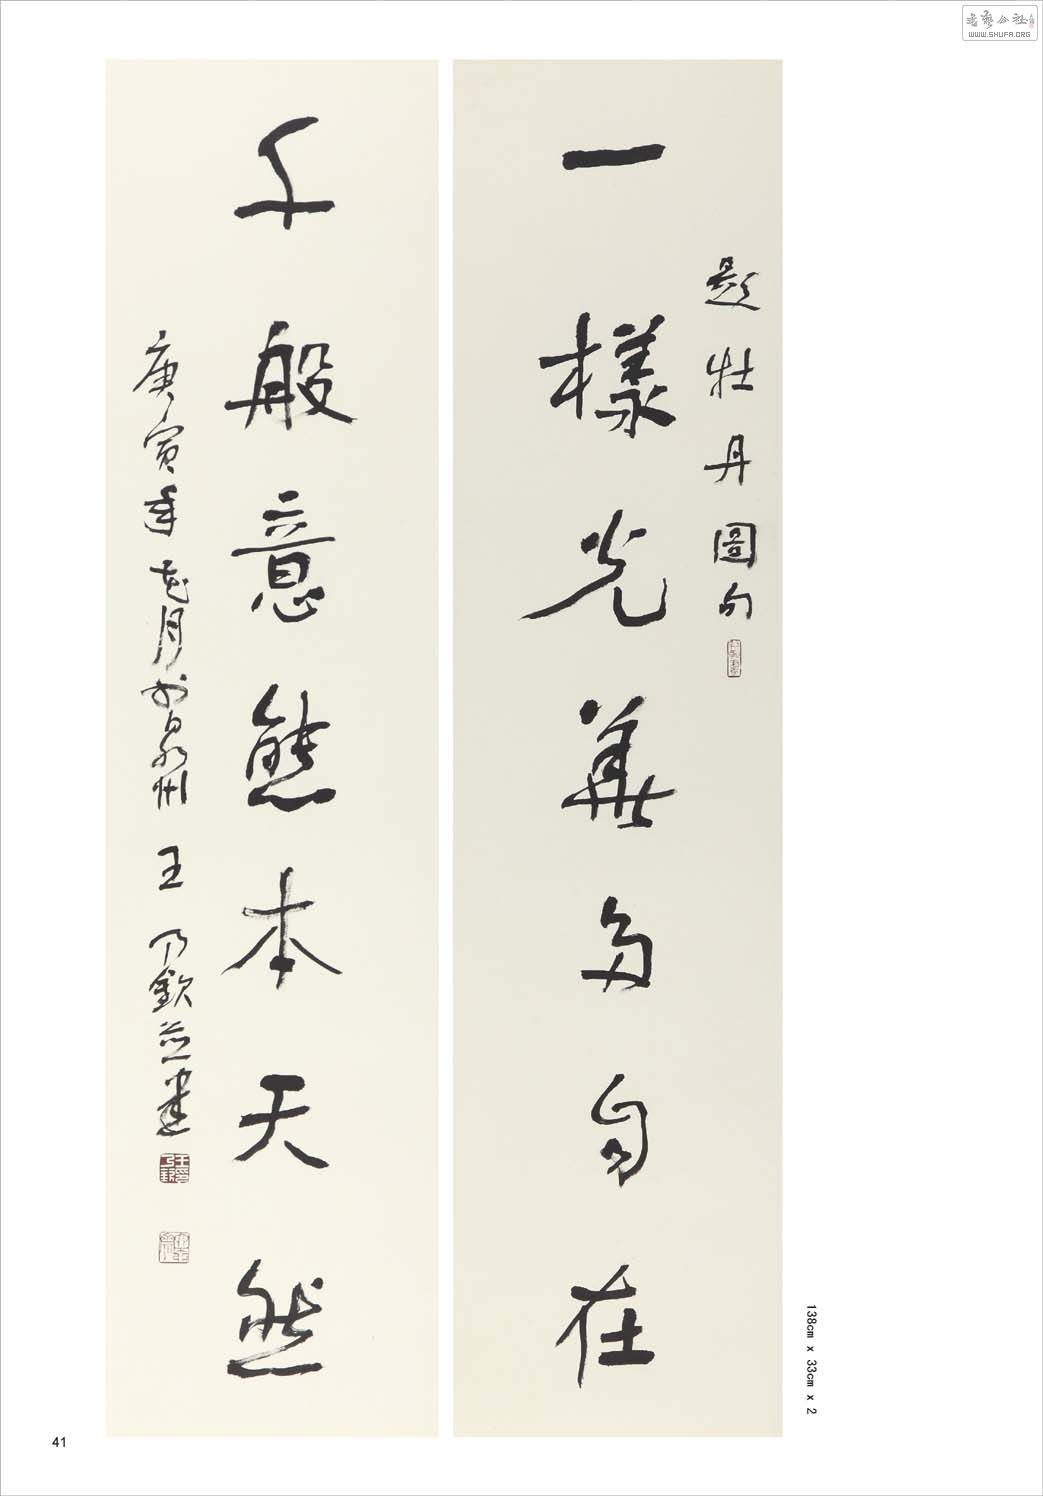 書藝公社
WWW.SHUFA.ORG
題牡丹圖句
一樣光華多自在
千般意態本天然
庚寅年花月於泉州王乃欽並書
138cm x 33cm x 2
41